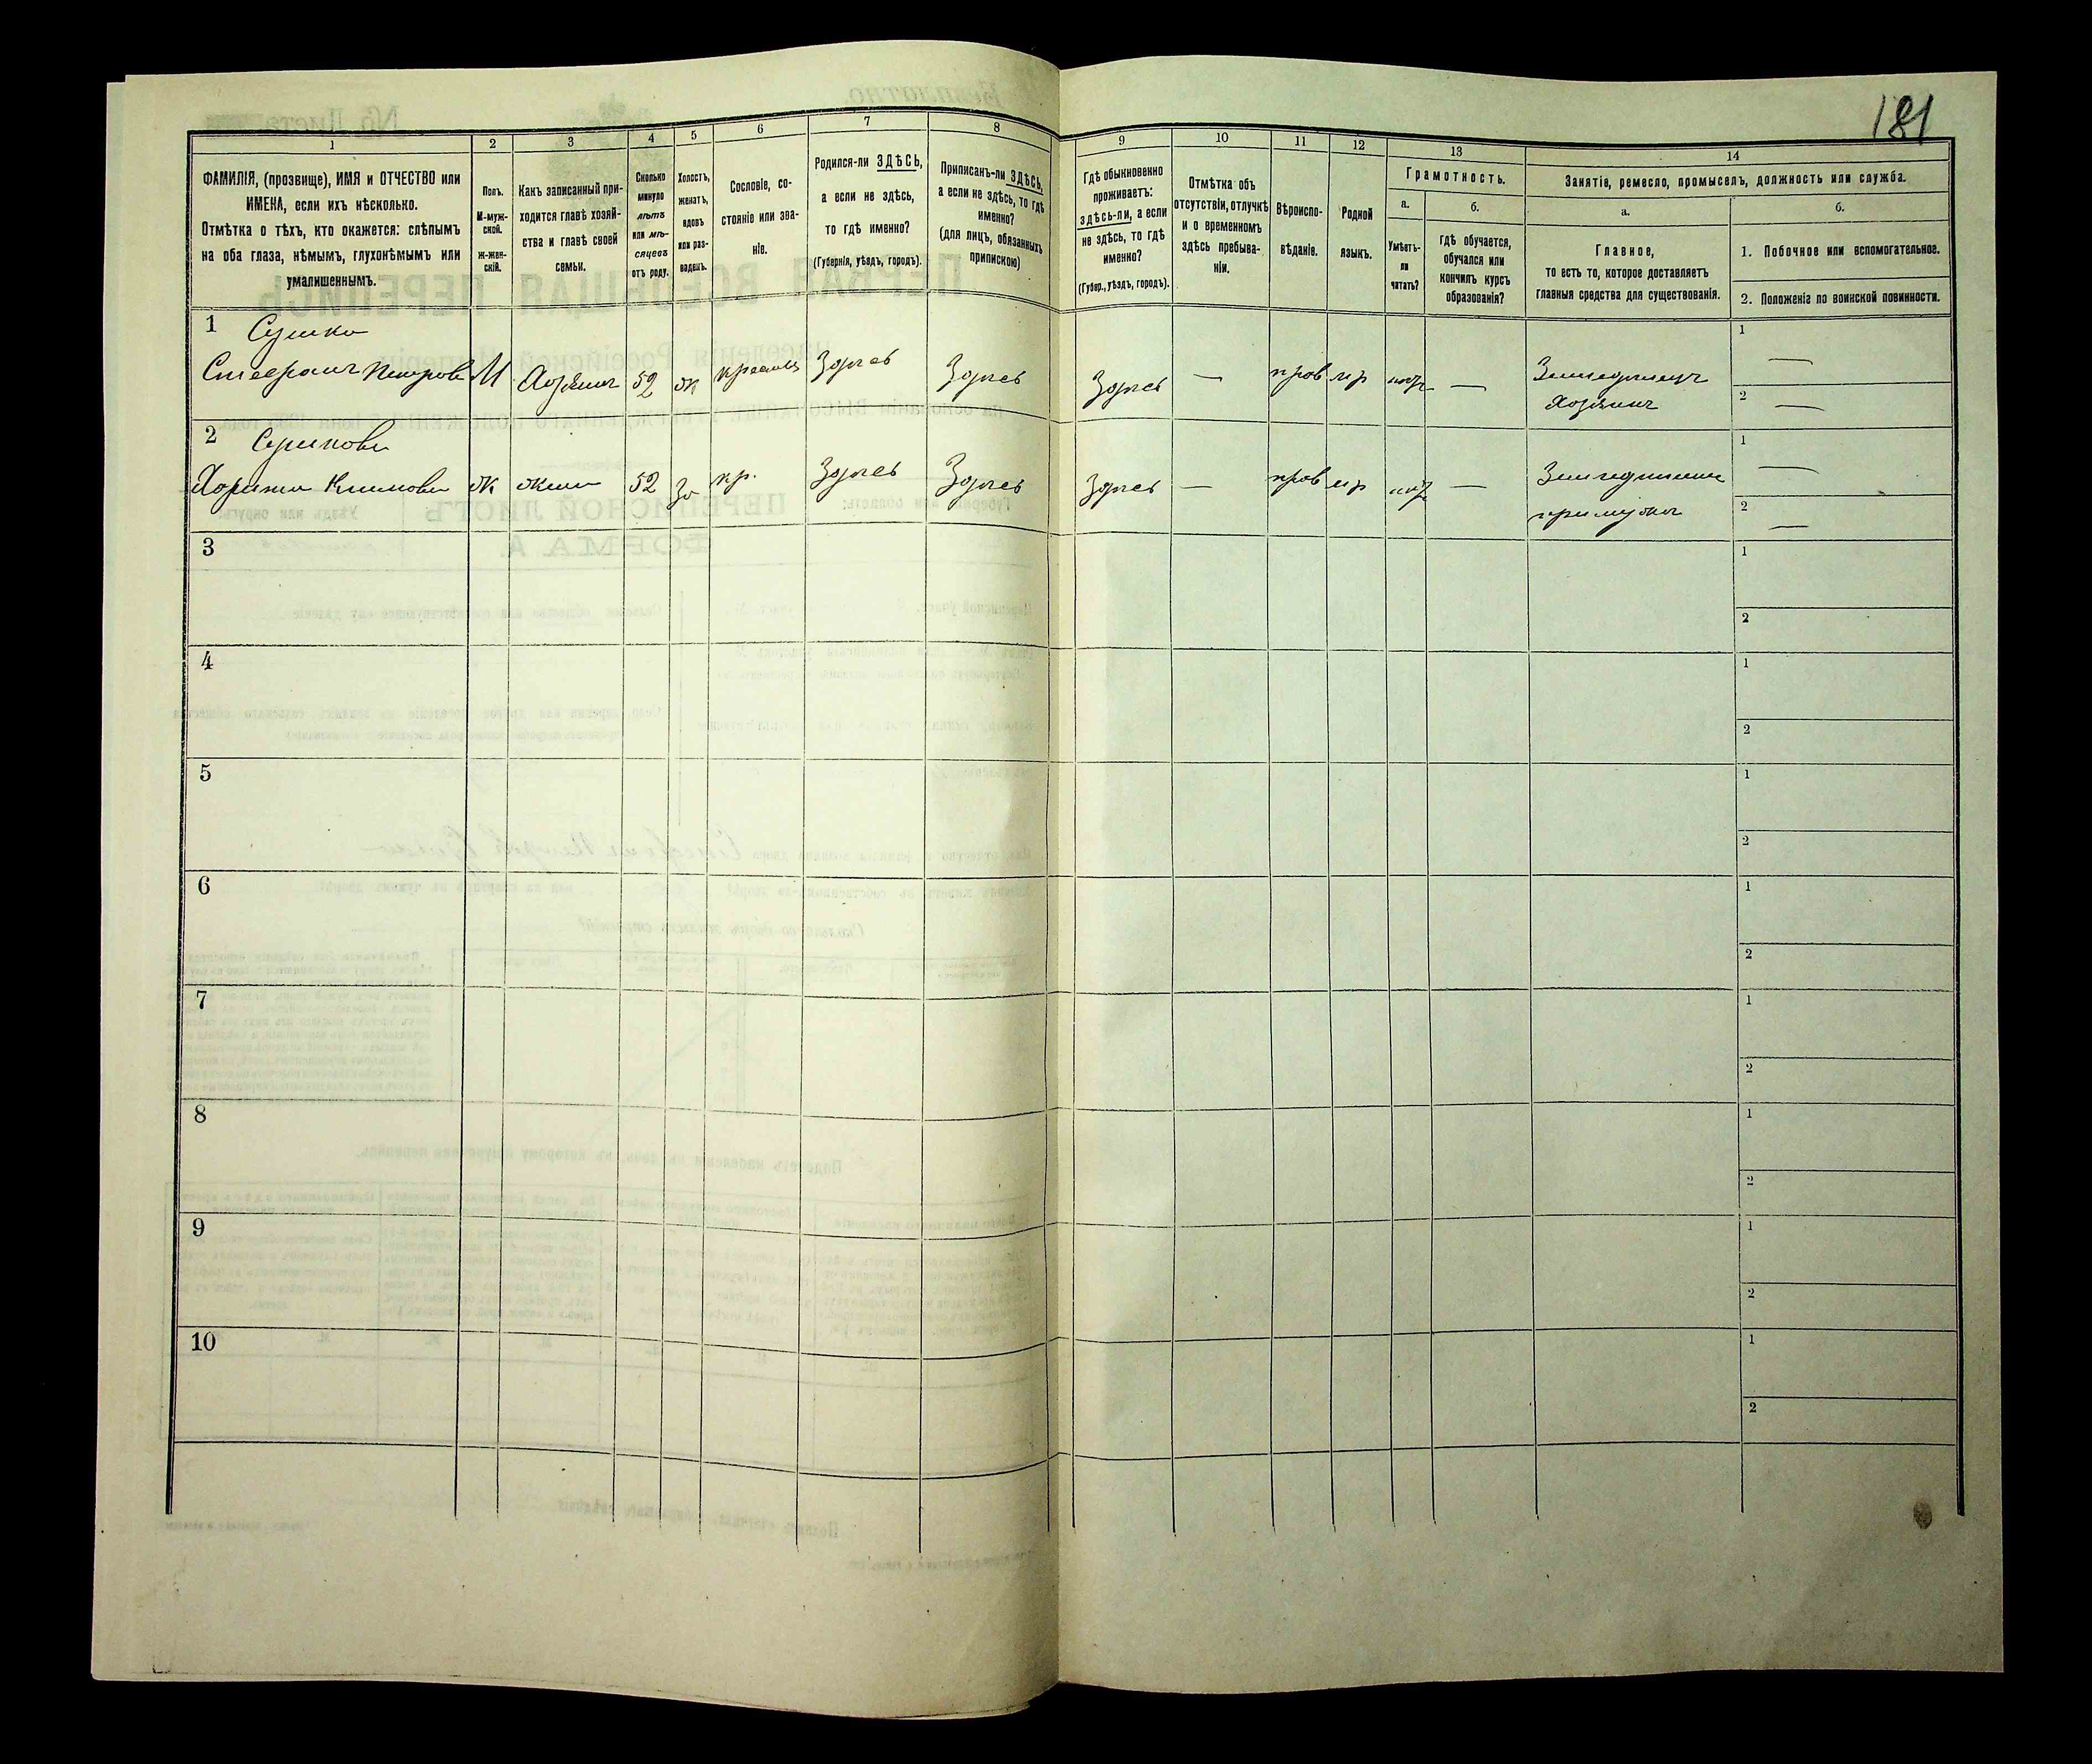 181
1
2
3
4
5
6
7
8
9
10
11
12
13
14
ФАМИЛІЯ, (прозвище), ИМЯ и ОТЧЕСТВО или
ИМЕНА, если ихъ нѣсколько.
Отмѣтка о тѣхъ, кто окажется: слѣпымъ
на оба глаза, нѣмымъ, глухонѣмымъ или
умалишеннымъ.
Полъ.
М-муж-
ской.
Ж-жен-
скій.
Какъ записанный при-
ходится главѣ хозяй-
ства и главѣ своей
семьи.
Сколько
минуло
лѣтъ
или мѣ-
сяцевъ
отъ роду.
Холостъ,
женатъ,
вдовъ
или раз-
веденъ.
Сословіе, со-
стояніе или зва-
ніе.
Родился-ли ЗДѢСЬ,
а если не здѣсь,
то гдѣ именно?
(Губернія, уѣздъ, городъ).
Приписанъ-ли ЗДѢСЬ,
а если не здѣсь, то гдѣ
именно?
(для лицъ, обязанныхъ
припискою)
Гдѣ обыкновенно
проживаетъ:
здѣсь-ли, а если
не здѣсь, то гдѣ
именно?
(Губер., уѣздъ, городъ).
Отмѣтка объ
отсутствіи, отлучкѣ
и о временномъ
здѣсь пребыва-
ніи.
Вѣроиспо-
вѣданіе.
Родной
языкъ.
Грамотность.
а.
Умѣетъ-
ли
читать?
б.
гдѣ обучается,
обучался или
кончилъ курсъ
образованія?
Занятіе, ремесло, промыселъ, должность или служба.
а.
Главное,
то есть то, которое доставляетъ
главныя средства для существованія.
б.
1. Побочное или вспомогательное.
2. Положеніе по воинской повинности.
1 Сушко
Стефанъ Петровъ М Хозяинъ 52 ж Здѣсь Здѣсь Здѣсь — прав мр —
Земледѣлецъ
хозяинъ
1 —
2 —
2
Климова ж жена 52 За кр. Здѣсь Здѣсь Здѣсь — прав мр —
1 —
2 —
3
1
2
4
1
2
5
1
2
6
1
2
7
1
2
8
1
2
9
1
2
10
1
2